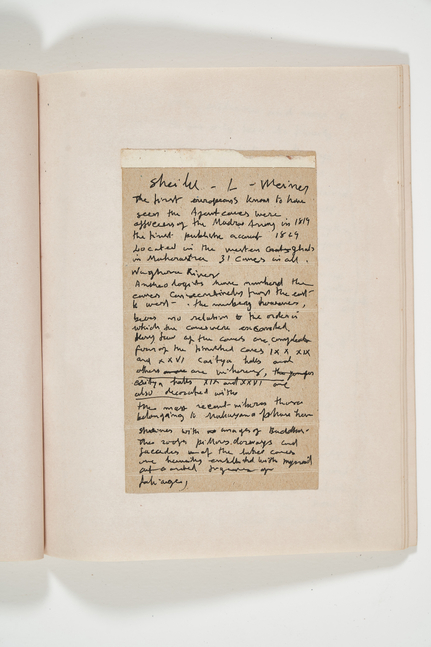 Sheikh - L - Meiner
the first europeans known to have
seen the Ajant caves were
officers of the Madras Army in 1819
the first publishe account 1829
Located in the western
in Maharastra 31 Caves in all.
Waghora River
Archeologists have numbered the
caves consecutively from the east
to west - the numbering however,
bears no relation to the order in
which the caves were excavated.
Very few of the caves are complete
four of the finished caves IX X XIX
and XXVI Caitya halls and
others are viharas, the younger
caitya halls XIX and XXVI are
also decorated with
the most recent viharas those
belonging to Mahayana phase have
shrines with images of Buddha.
The roofs pillars doorways and
facades of the later caves
are heavily